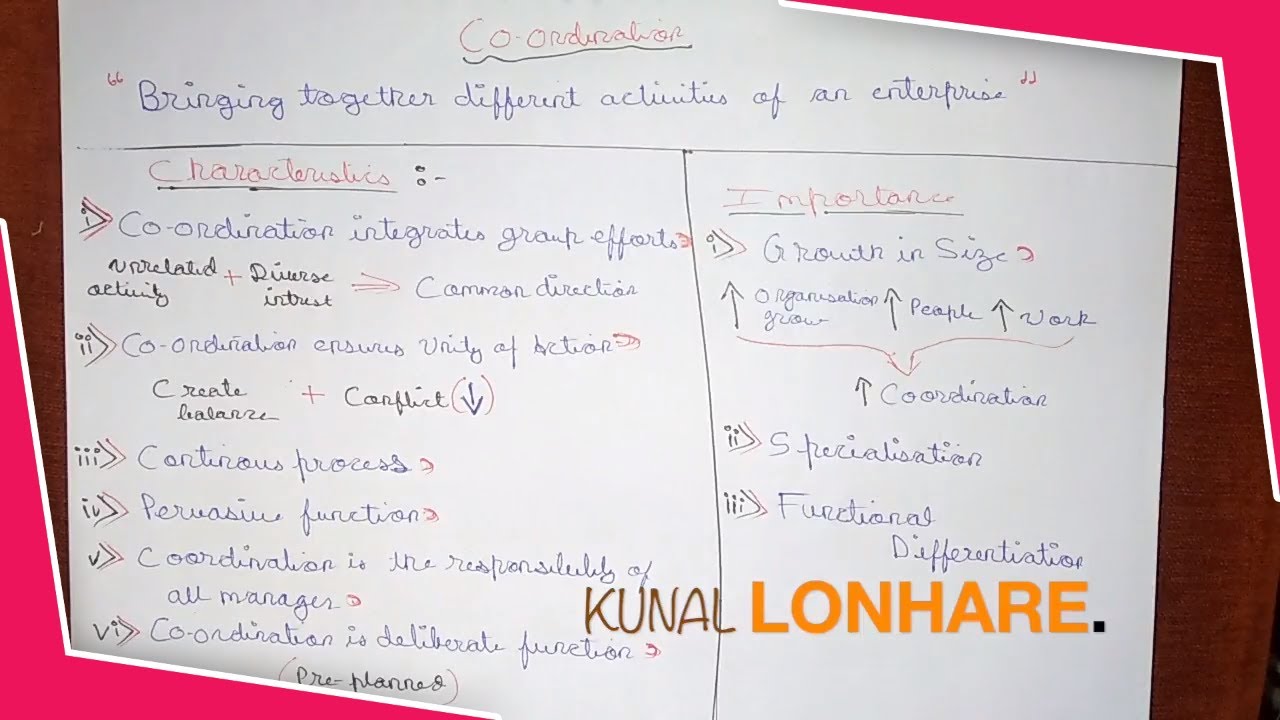 Co-ordination
“ Bringing together different activities of an enterprise ”
Characteristics :-
i) Co-ordination integrates group efforts
Unrelated activity + Diverse intrest ⇒ Common direction
ii) Co-ordination ensures Unity of Action
Create balance + Conflict (↓)
iii) Continous process
iv) Pervasive function
v) Coordination is the responsibility of
all manager
vi) Co-ordination is deliberate function
(Pre-planned)
Importance
i) Growth in Size
↑ Organisation grow ↑ People ↑ Work
↑ Coordination
ii) Specialisation
iii) Functional
Differentiation
KUNAL LONHARE.